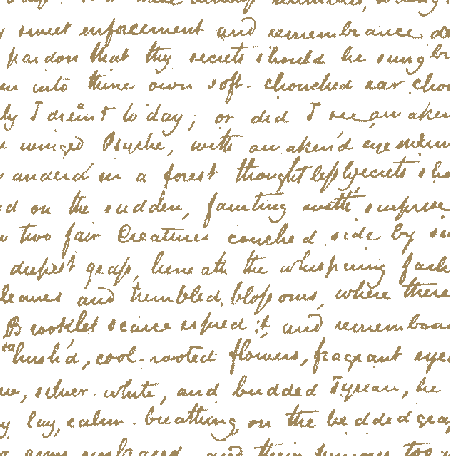 sweet enforcement and remembrance
pardon that thy secrets should be sung
into thine own soft-chonched ear
I dreamt to day; or did I see awaken
winged Psyche, with awaken'd eyes
wander'd in a forest thoughtlessly
on the sudden, fainting with surprise
two fair Creatures couched side by
deepest grass, beneath the whispering
leaves and trembled blossoms, where there
Brooklet scarce espied: and
hush'd, cool-rooted flowers, fragrant
silver-white, and budded Tyrian, he
lay, calm-breathing on the bedded